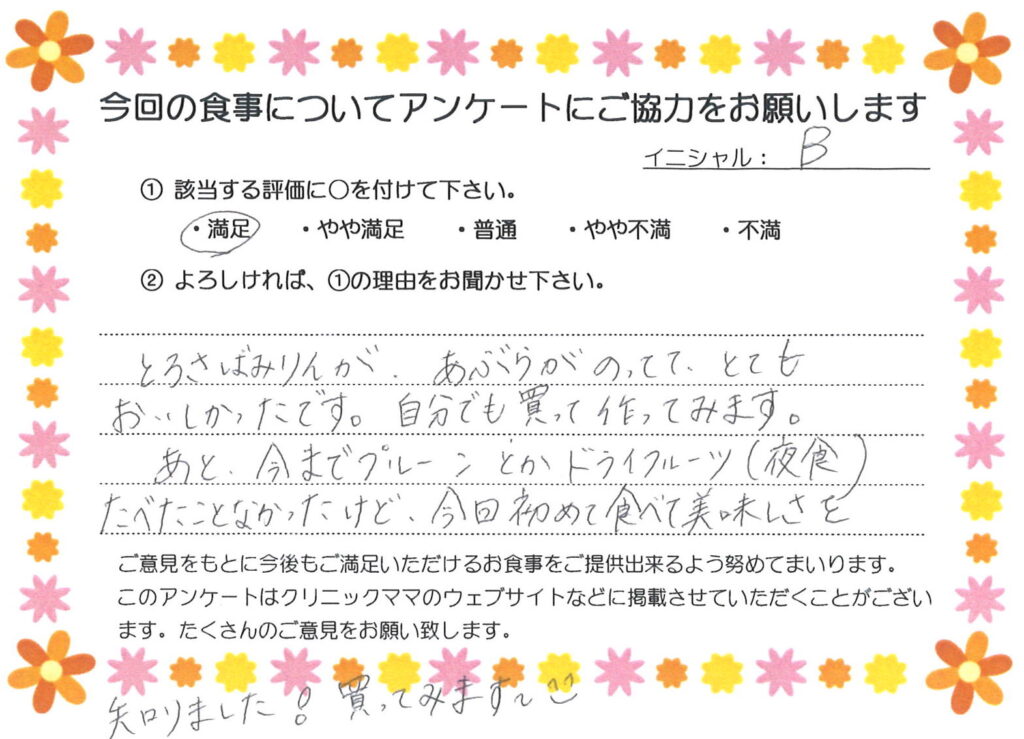 今回の食事についてアンケートにご協力をお願いします
イニシャル： B
① 該当する評価に○を付けて下さい。
・満足 ・やや満足 ・普通 ・やや不満 ・不満
② よろしければ、①の理由をお聞かせ下さい。
とろさばみりんが、あぶらがのってて、とても
おいしかったです。自分でも買って作ってみます。
あと、今までプルーンとかドライフルーツ(夜食)
たべたことなかったけど、今回初めて食べて美味しさを
ご意見をもとに今後もご満足いただけるお食事をご提供出来るよう努めてまいります。
このアンケートはクリニックママのウェブサイトなどに掲載させていただくことがござい
ます。たくさんのご意見をお願い致します。
知りました！買ってみます〜